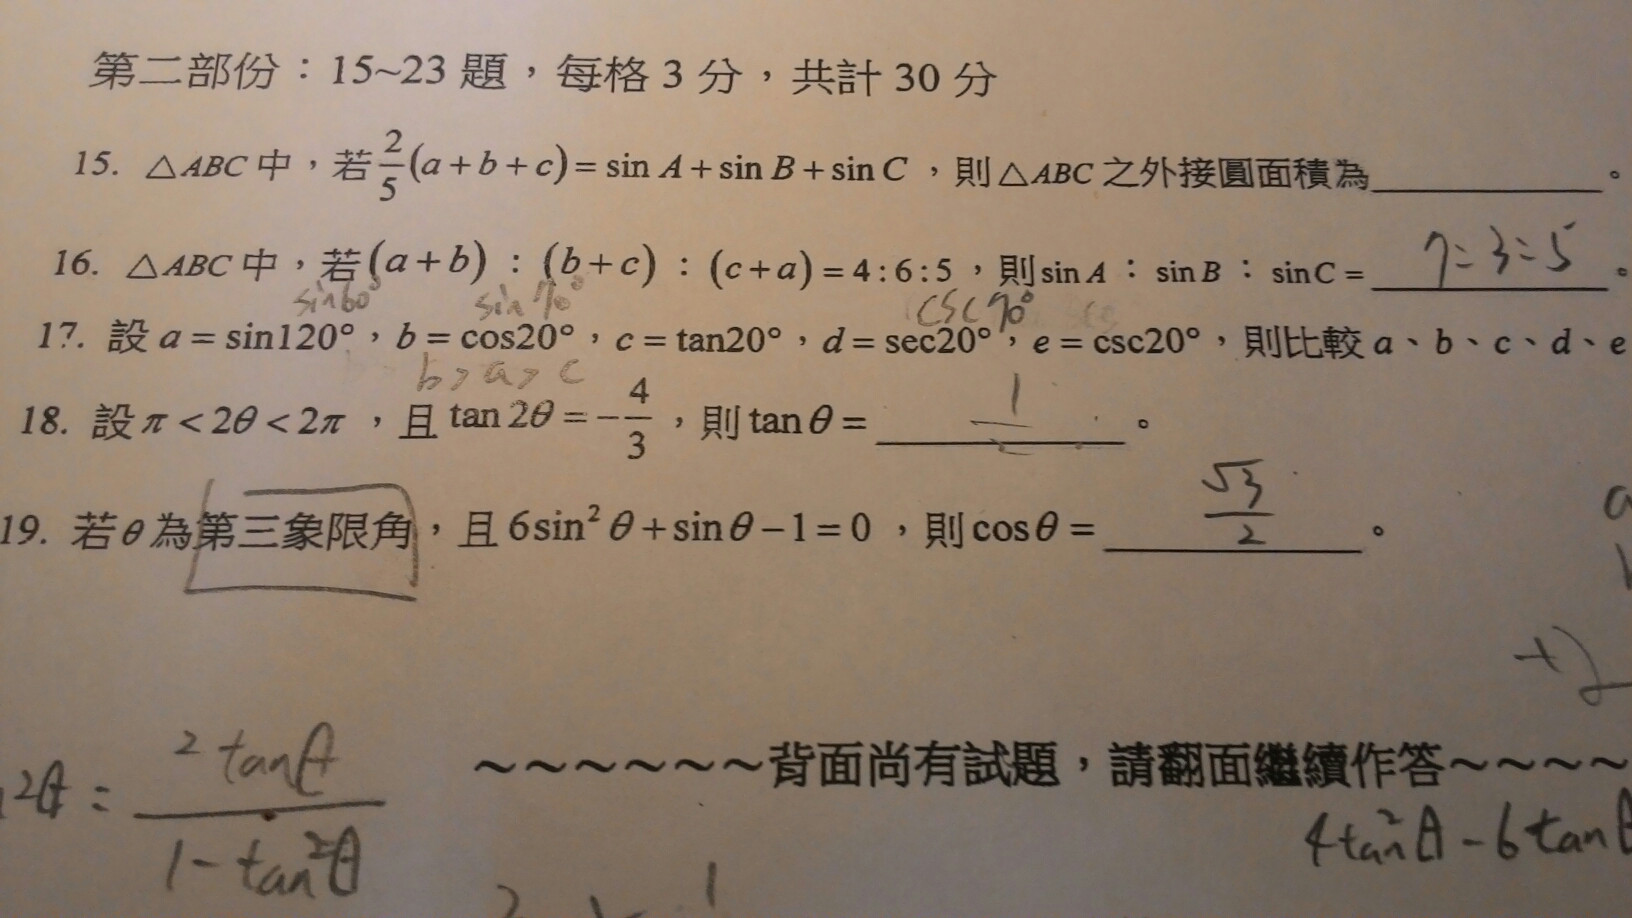 第二部份：15~23 題，每格 3 分，共計 30 分
15. △ABC 中，若 2/5 (a+b+c) = sin A + sin B + sin C ，則△ABC 之外接圓面積為________。
16. △ABC 中，若 (a+b) : (b+c) : (c+a) = 4:6:5，則 sin A : sin B : sin C = 7:3:5。
sin60° sin70° csc70°
17. 設 a = sin120°，b = cos20°，c = tan20°，d = sec20°，e = csc20°，則比較 a、b、c、d、e
b>a>c
18. 設 π < 2θ < 2π ，且 tan 2θ = −4/3 ，則 tan θ = 1/2 。
19. 若 θ 為第三象限角，且 6sin² θ + sin θ − 1 = 0 ，則 cos θ = √3/2 。
2θ = 2tanθ / 1−tan²θ
~~~~~~背面尚有試題，請翻面繼續作答~~~~
4tan²θ − 6tanθ